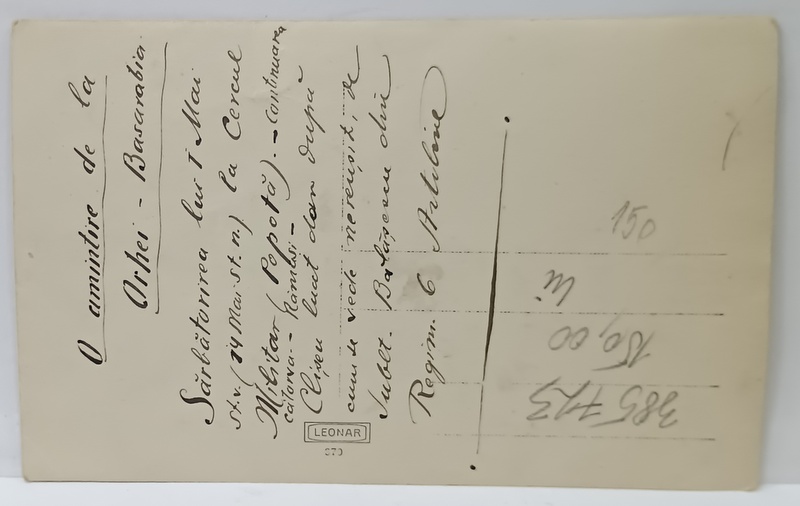 O amintire de la
Orhei - Basarabia.
Sărbătorirea lui 1 Mai
st. v. (14 Mai st. n.) la Cercul
Militar (Popotă). - Continuarea
cătorva. - Rămăși -
Clișeu luat dar după
cum se vede nereușit, de
Sublt. Bălășescu din
Regim. 6 Artilerie
LEONAR
150
Li
150,00
385723